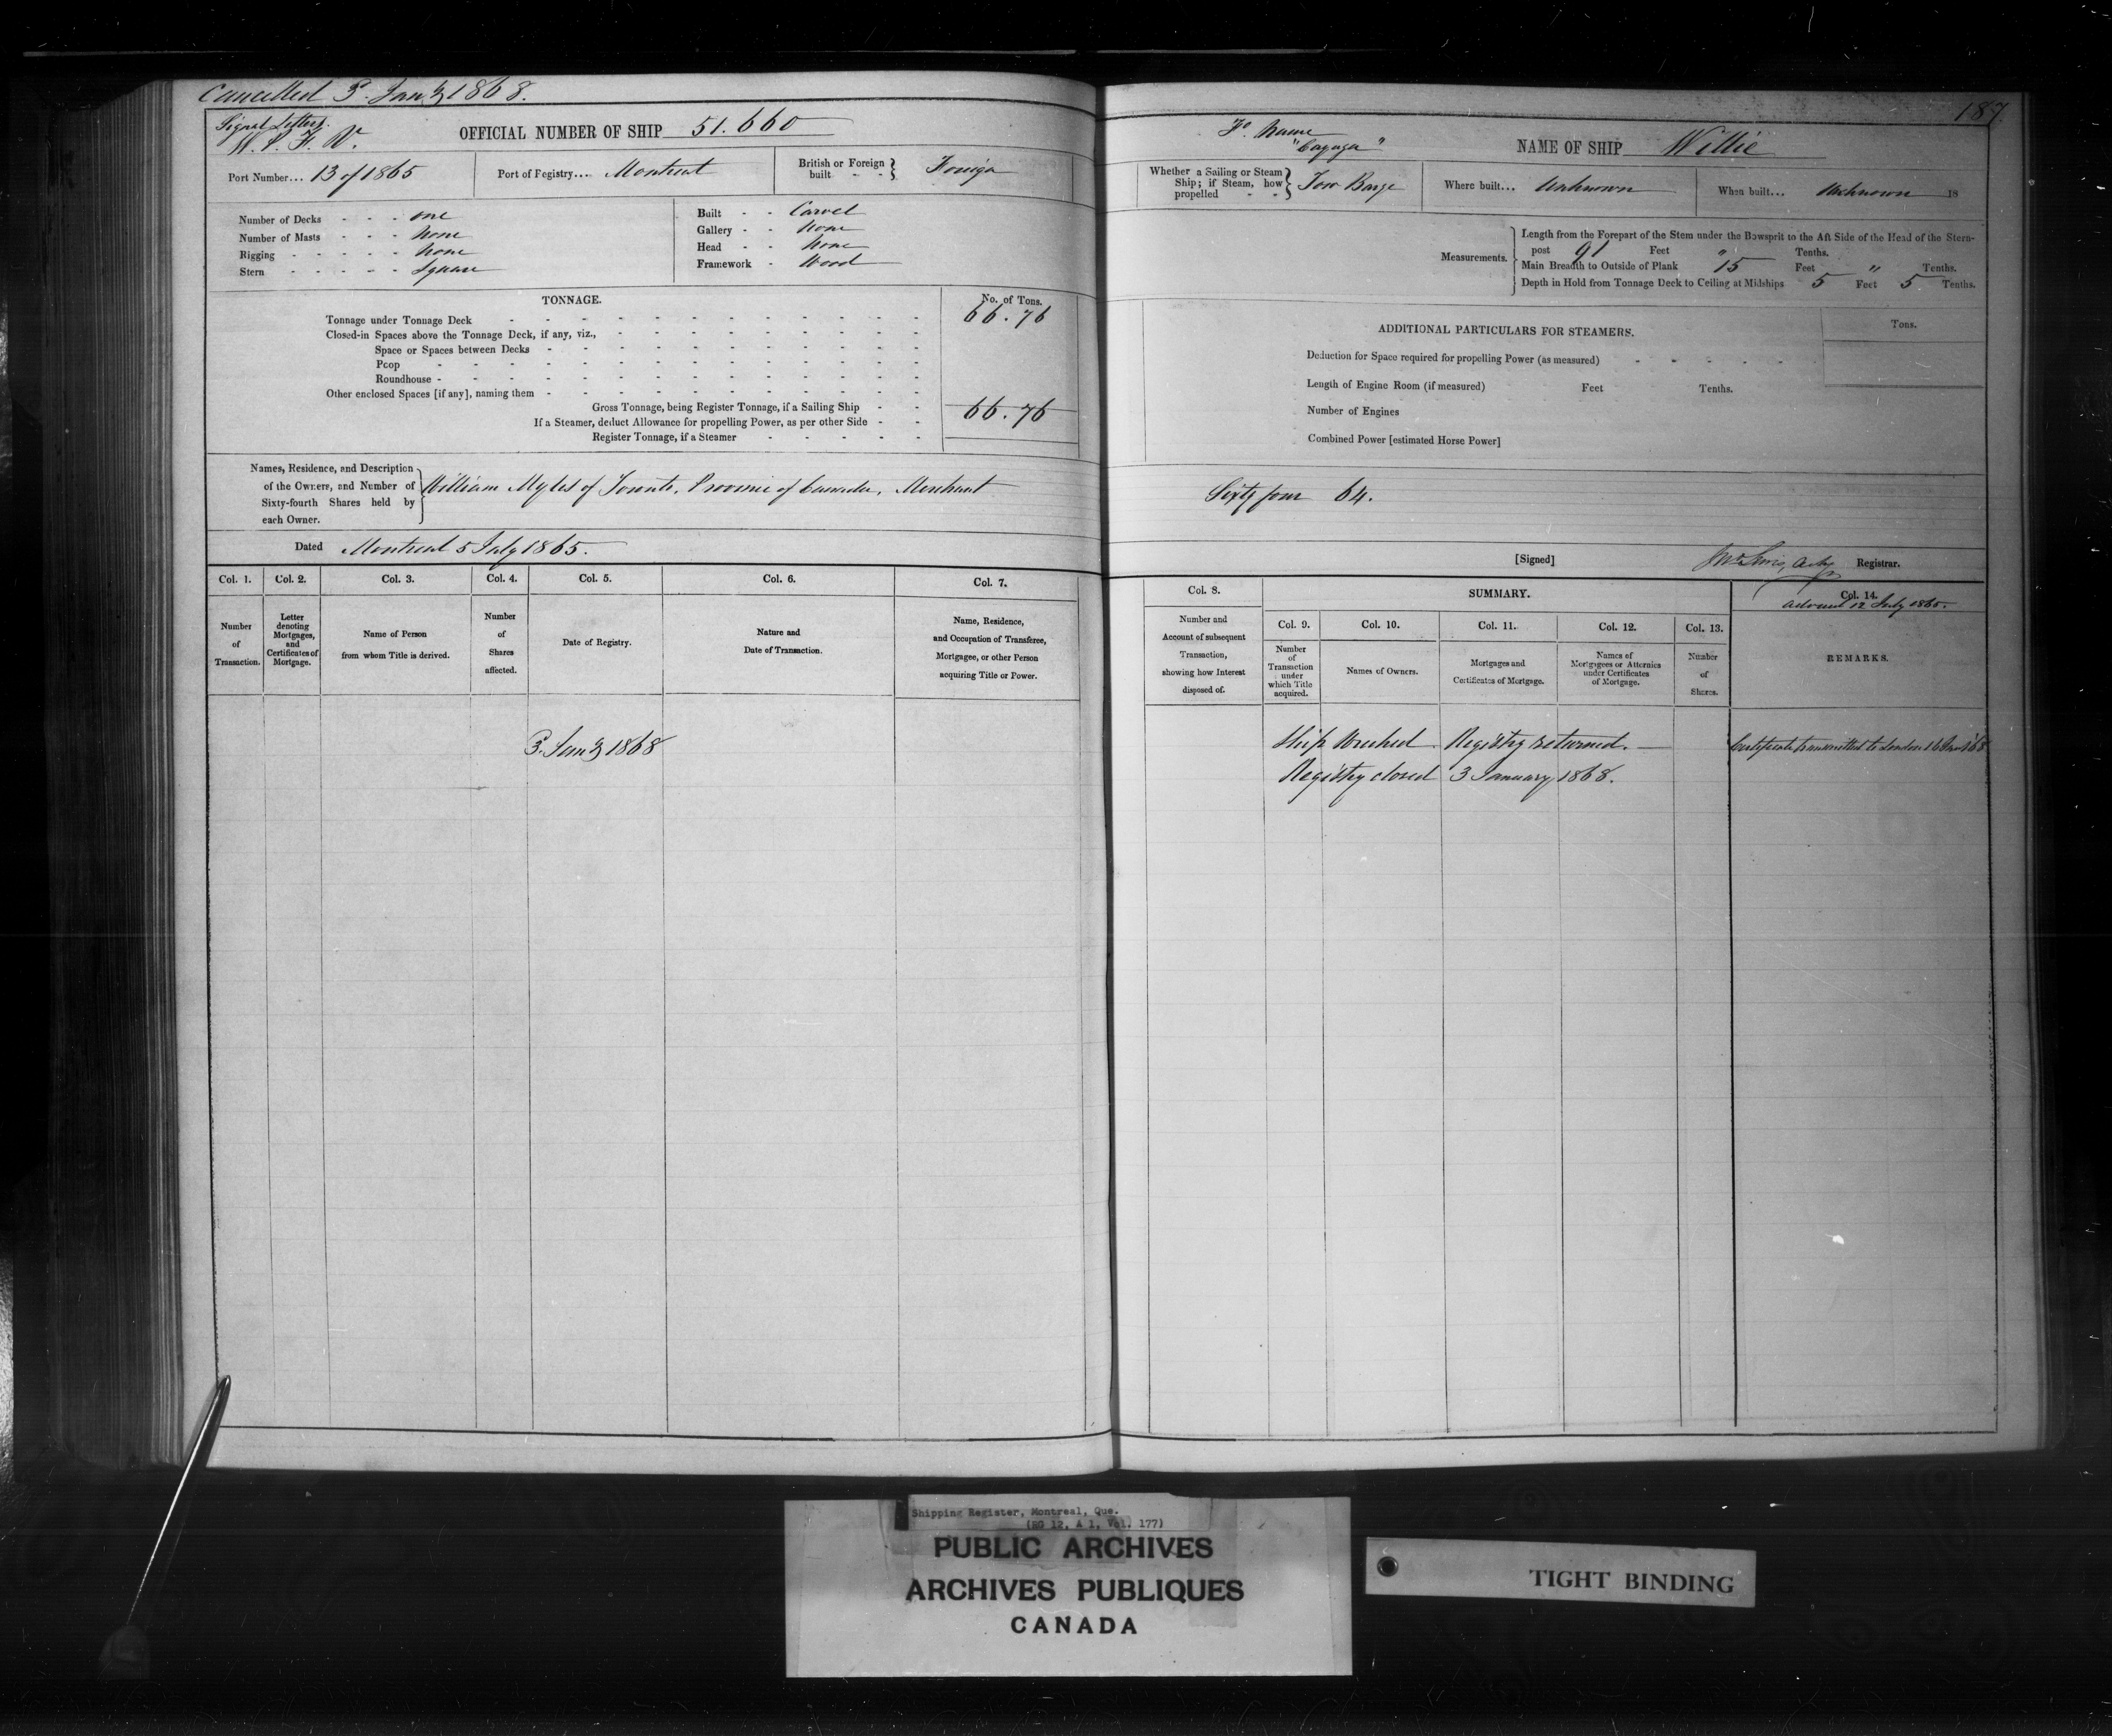 Cancelled 3. Jany 1868.
187
Signal Letters.
OFFICIAL NUMBER OF SHIP 51.660
Fr. Name
"Cayuga"
NAME OF SHIP Willie
Port Number... 13 of 1865
Port of Registry... Montreal
British or Foreign built - - } Foreign
Whether a Sailing or Steam
Ship; if Steam, how
propelled - - } Tow Barge
Where built... Unknown
When built... Unknown 18
Number of Decks - - - one
Number of Masts - - - None
Rigging - - - - - None
Stern - - - - - Square
Built - - Carvel
Gallery - - None
Head - - None
Framework - Wood
Measurements.
Length from the Forepart of the Stem under the Bowsprit to the Aft Side of the Head of the Stern-
post 91 Feet " Tenths.
Main Breadth to Outside of Plank 15 Feet " Tenths.
Depth in Hold from Tonnage Deck to Ceiling at Midships 5 Feet 5 Tenths.
TONNAGE.
No. of Tons.
Tonnage under Tonnage Deck 66.76
Closed-in Spaces above the Tonnage Deck, if any, viz.,
Space or Spaces between Decks
Poop
Roundhouse
Other enclosed Spaces [if any], naming them
Gross Tonnage, being Register Tonnage, if a Sailing Ship 66.76
If a Steamer, deduct Allowance for propelling Power, as per other Side
Register Tonnage, if a Steamer
ADDITIONAL PARTICULARS FOR STEAMERS.
Tons.
Deduction for Space required for propelling Power (as measured)
Length of Engine Room (if measured) Feet Tenths.
Number of Engines
Combined Power [estimated Horse Power]
Names, Residence, and Description
of the Owners, and Number of
Sixty-fourth Shares held by
each Owner.
William Myles of Toronto, Province of Canada, Merchant
Sixty four 64.
Dated Montreal 5 July 1865.
[Signed]
Registrar.
Col. 1.
Col. 2.
Col. 3.
Col. 4.
Col. 5.
Col. 6.
Col. 7.
Number
of
Transaction.
Letter
denoting
Mortgages,
and
Certificates of
Mortgage.
Name of Person
from whom Title is derived.
Number
of
Shares
affected.
Date of Registry.
Nature and
Date of Transaction.
Name, Residence,
and Occupation of Transferee,
Mortgagee, or other Person
acquiring Title or Power.
Col. 8.
SUMMARY.
Col. 14.
12 July 1865.
Number and
Account of subsequent
Transaction,
showing how Interest
disposed of.
Col. 9.
Col. 10.
Col. 11.
Col. 12.
Col. 13.
Number
of
Transaction
under
which Title
acquired.
Names of Owners.
Mortgages and
Certificates of Mortgage.
Names of
Mortgagees or Attornies
under Certificates
of Mortgage.
Number
of
Shares.
REMARKS.
3. Jany 1868
Ship Wrecked. Registry returned.
Certificate transmitted to London
Registry closed 3 January 1868.
Shipping Register, Montreal, Que.
(RG 12, A 1, Vol. 177)
PUBLIC ARCHIVES
ARCHIVES PUBLIQUES
CANADA
TIGHT BINDING